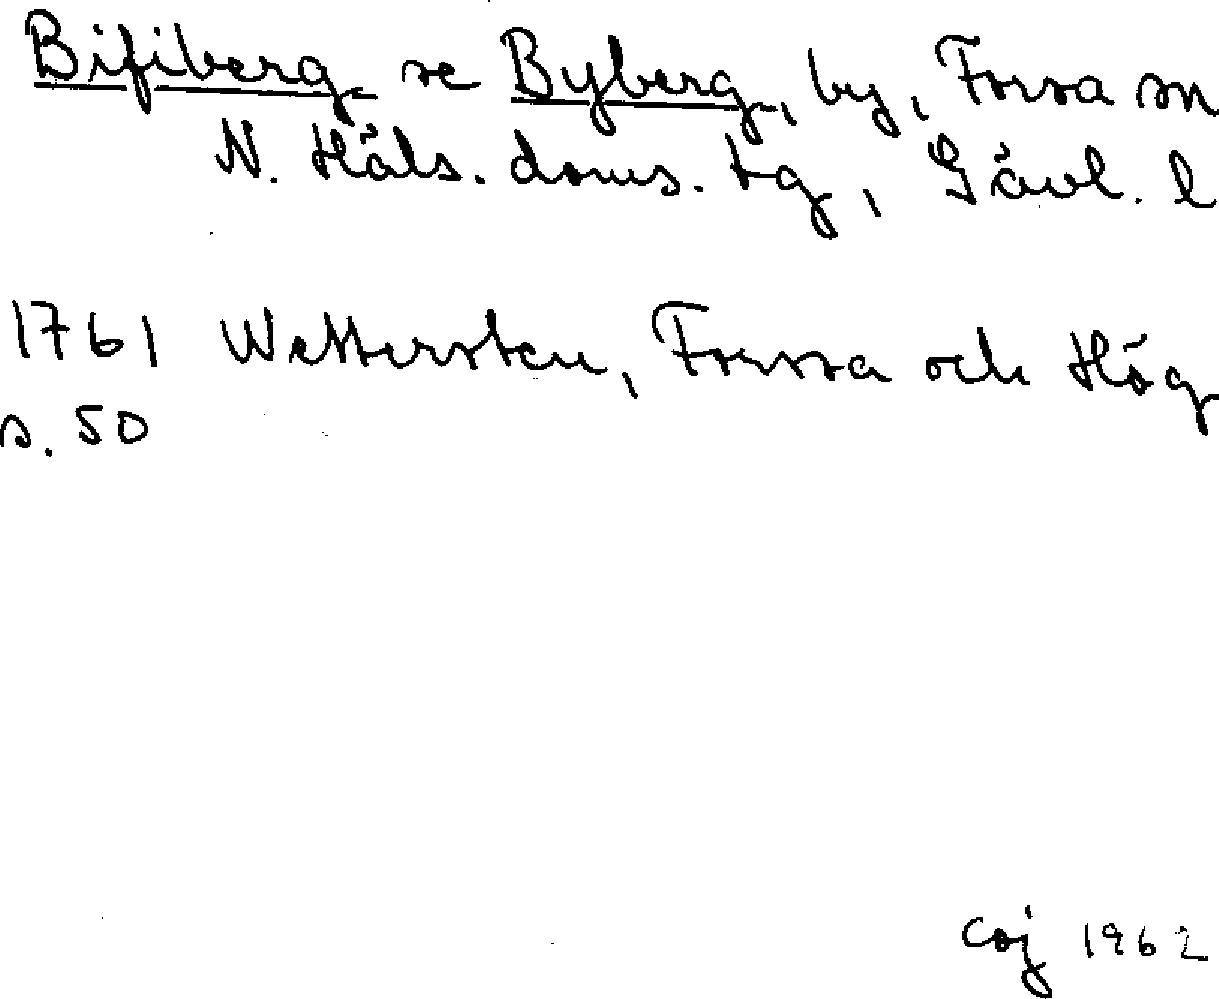 Bifiberg se Byberg, by, Forsa sn
N. Häls. doms. tg, Gävl. l
1761 Wettersten, Forssa och Hög
s. 50
Coj 1962